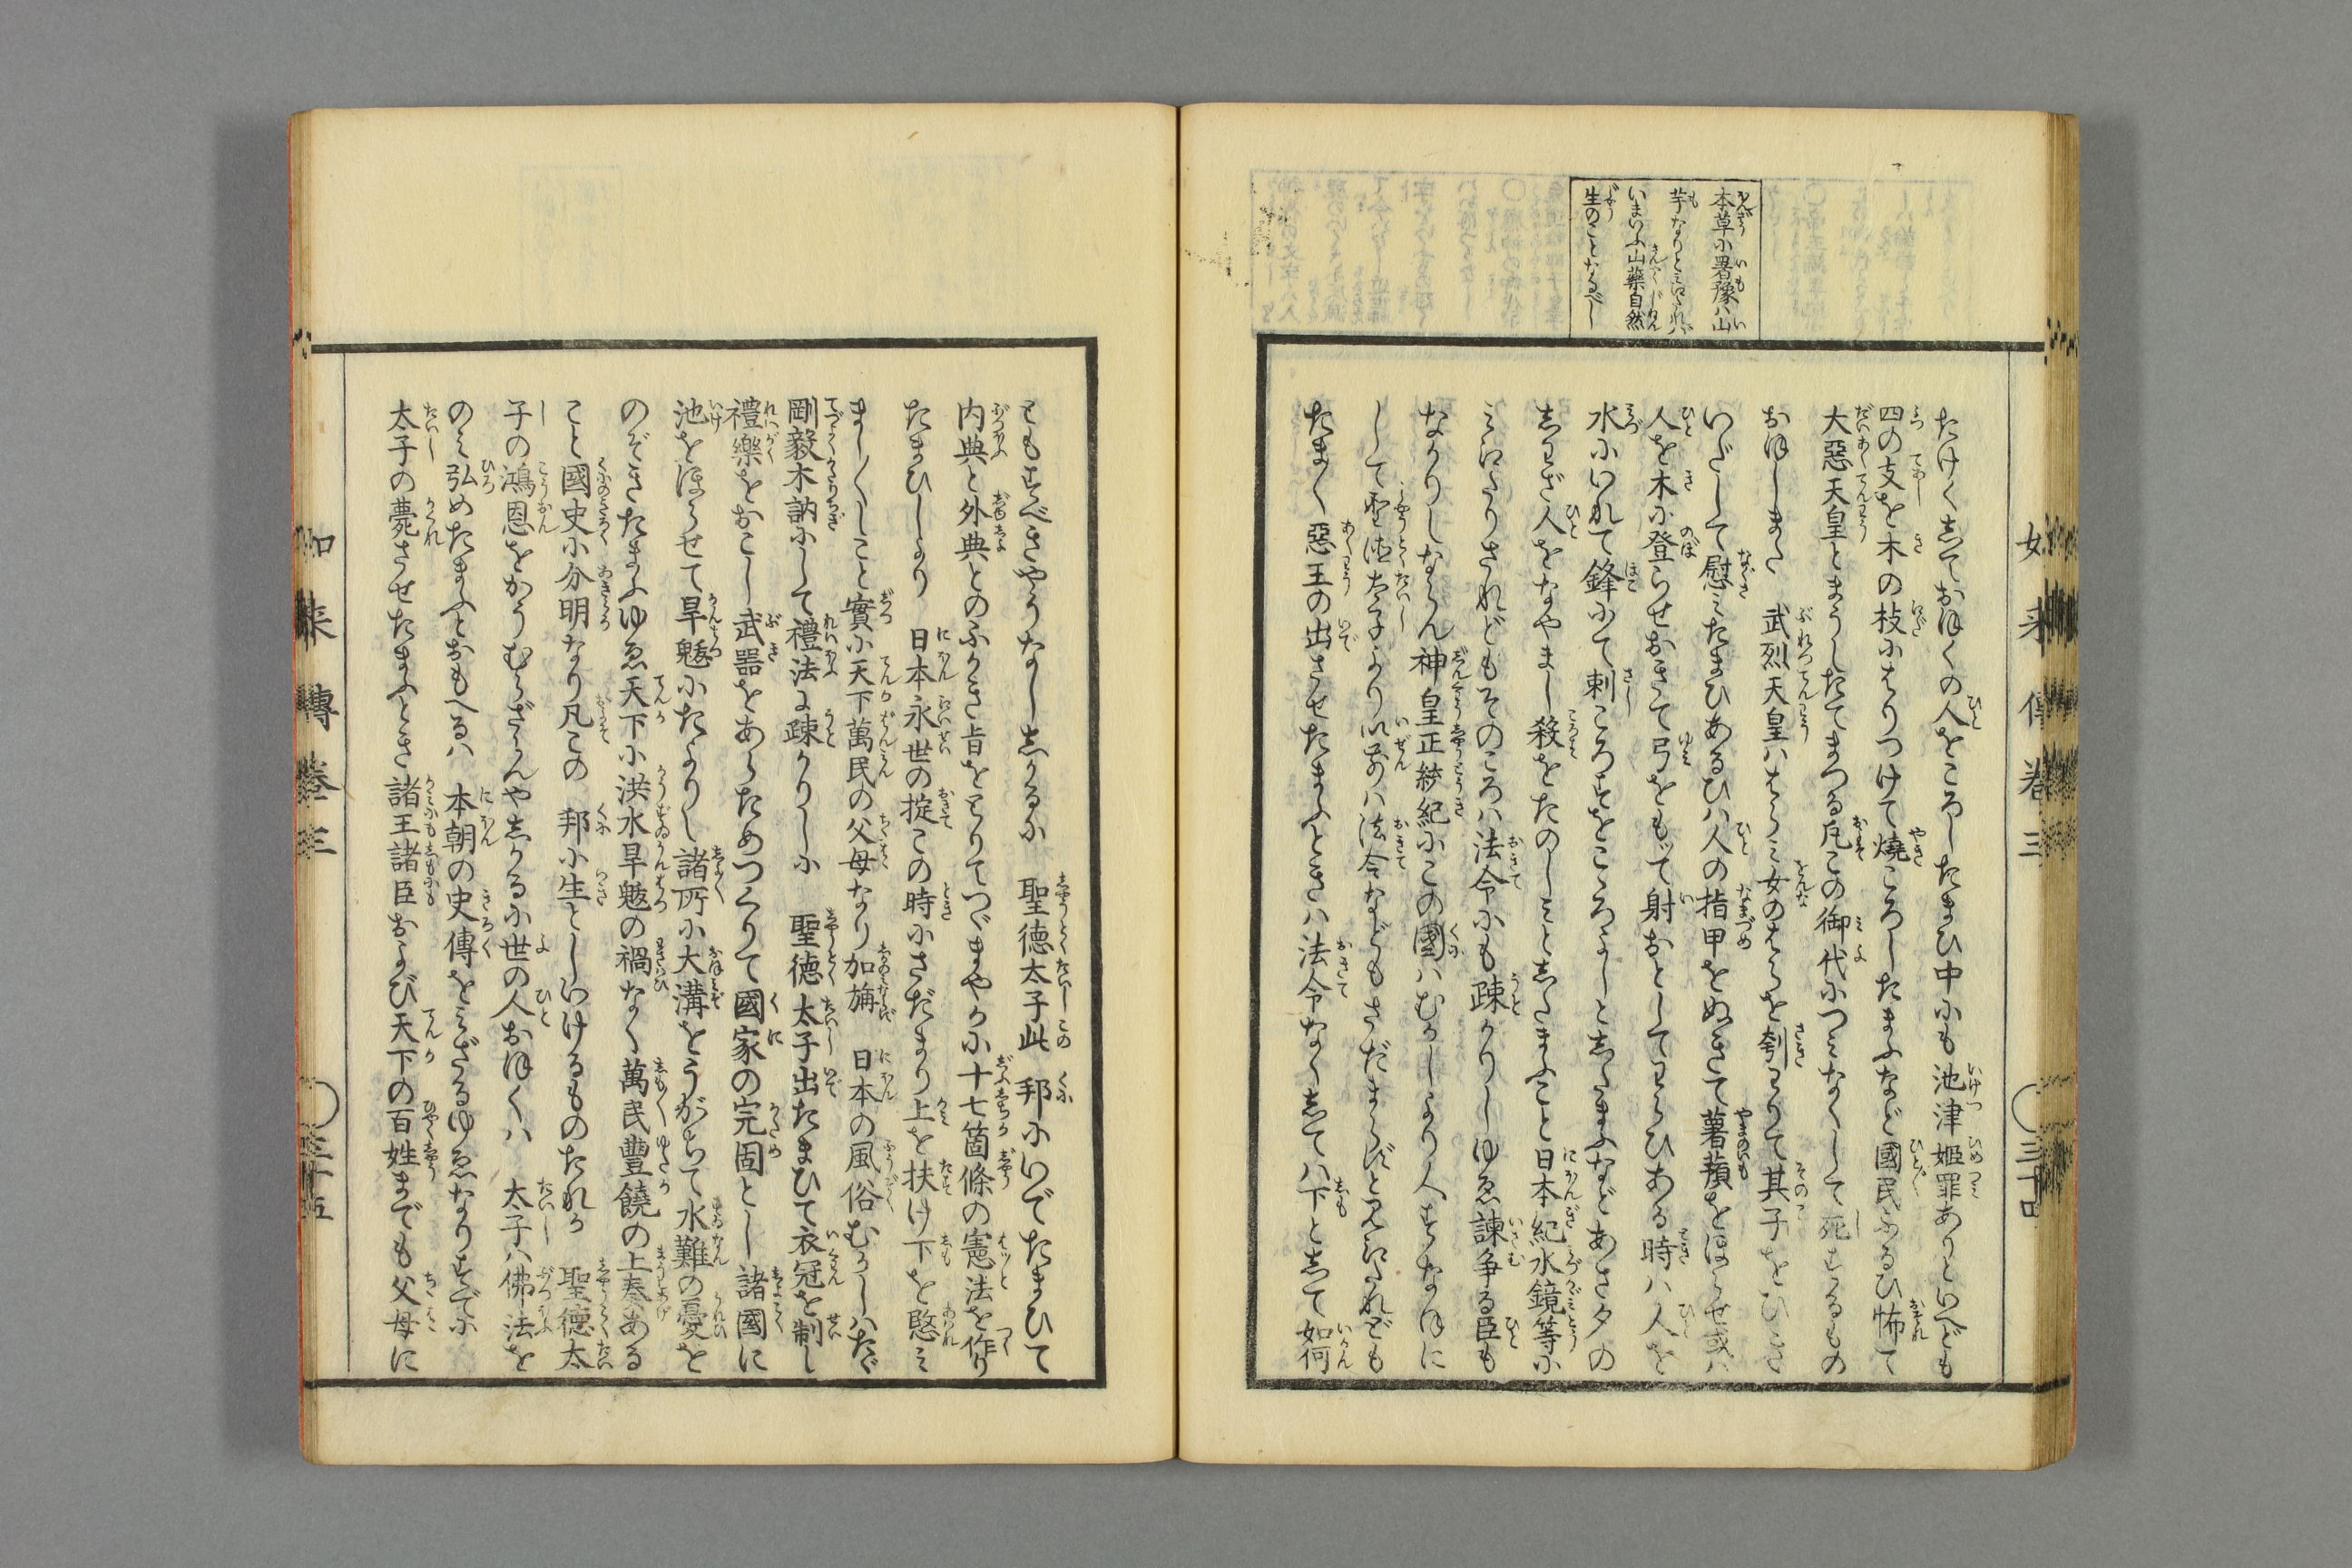 本草に署豫ハ山
芋なりとみえたれバ
いまいふ山藥自然
生のことなるべし
たけくしておほくの人をころしたまひ中にも池津姫罪ありといへども
四の支を木の枝にはりつけて燒ころしたまふなど國民ふるひ怖て
大惡天皇とまうしたてまつる凡この御代につみなくして死するもの
おほしまた　武烈天皇ハはらみ女のはらを刳わりて其子をひきさ
いだして慰みたまひあるひハ人の指甲をぬきて薯蕷をほらせ或ハ
人を木に登らせおきて弓をもて射おとしてわらひある時ハ人を
水にいれて鋒にて刺ころすをこころよしとしたまふなどあさ夕の
しわざ人をなやまし殺をたのしみとしたまふこと日本紀水鏡等に
みえたりされどもそのころハ法令にも疎かりしゆゑ諫争る臣も
なかりしならん神皇正統紀にこの國ハむかしより人すなほに
して聖徳太子より以前ハ法令などもさだまらずと見えたれども
たま〱惡王の出させたまふときハ法令なくしてハ下として如何
ともすべきやうなししかるに　聖徳太子此　邦にいでたまひて
内典と外典とのふかき旨をとりてつゞまやかに十七箇條の憲法を作り
たまひしより　日本永世の掟この時にさだまり上を扶け下を愍み
まし〱しこと實に天下萬民の父母なり加旃　日本の風俗むかしハたゞ
剛毅木訥にして禮法に疎かりしに　聖德太子出たまひて衣冠を制し
禮樂をおこし武噐をあらためつくりて國家の完固とし諸國に
池をほらせて旱魃にたよりし諸所に大溝をうがちて水難の憂を
のぞきたまふゆゑ天下に洪水旱魃の禍なく萬民豐饒の上奏ある
こと國史に分明なり凡この　邦に生としいけるものたれか　聖德太
子の鴻恩をかうむらざらんやしかるに世の人おほくハ　太子ハ佛法を
のミ弘めたまふとおもへるハ　本朝の史傳をみざるゆゑなりすでに
太子の薨させたまふとき諸王諸臣および天下の百姓までも父母に
如来傳巻三
三十四
如来傳巻三
三十五